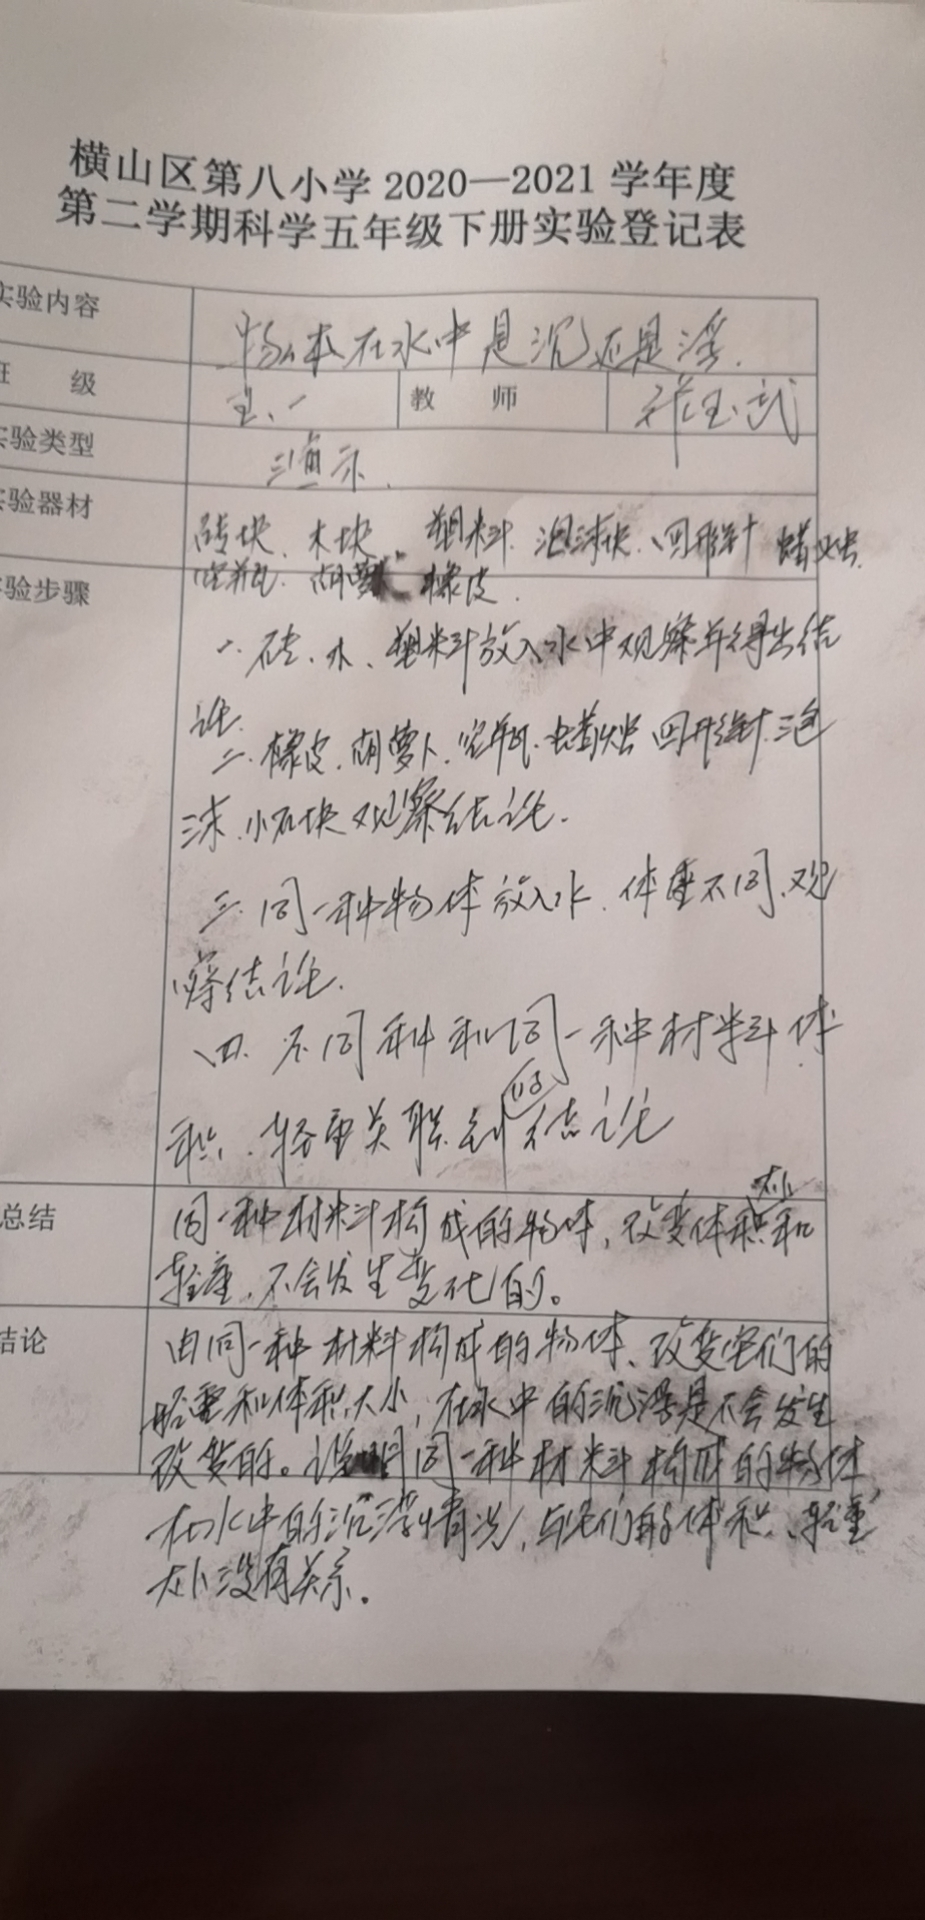 横山区第八小学2020—2021学年度
第二学期科学五年级下册实验登记表
实验内容 物体在水中是沉还是浮.
班 级 五、一 教 师
实验类型 演示.
实验器材 砖块、木块、塑料.泡沫块、回形针 蜡烛.
空瓶.胡萝 橡皮.
实验步骤
一.砖、木、塑料放入水中观察并得出结
论.
二.橡皮.胡萝卜.空瓶.蜡烛 回形针.泡
沫.小石块 观察结论.
三.同一种物体放入水.体重不同.观
察结论.
四.不同种和同一种材料体
积、轻重关联 结论
总结 同一种材料构成的物体,改变体积大小和
轻重,不会发生变化的。
结论 由同一种材料构成的物体、改变它们的
轻重和体积大小,在水中的沉浮是不会发生
改变的。说明同一种材料构成的物体
在水中的沉浮情况,与它们的体积、轻重
大小没有关系。